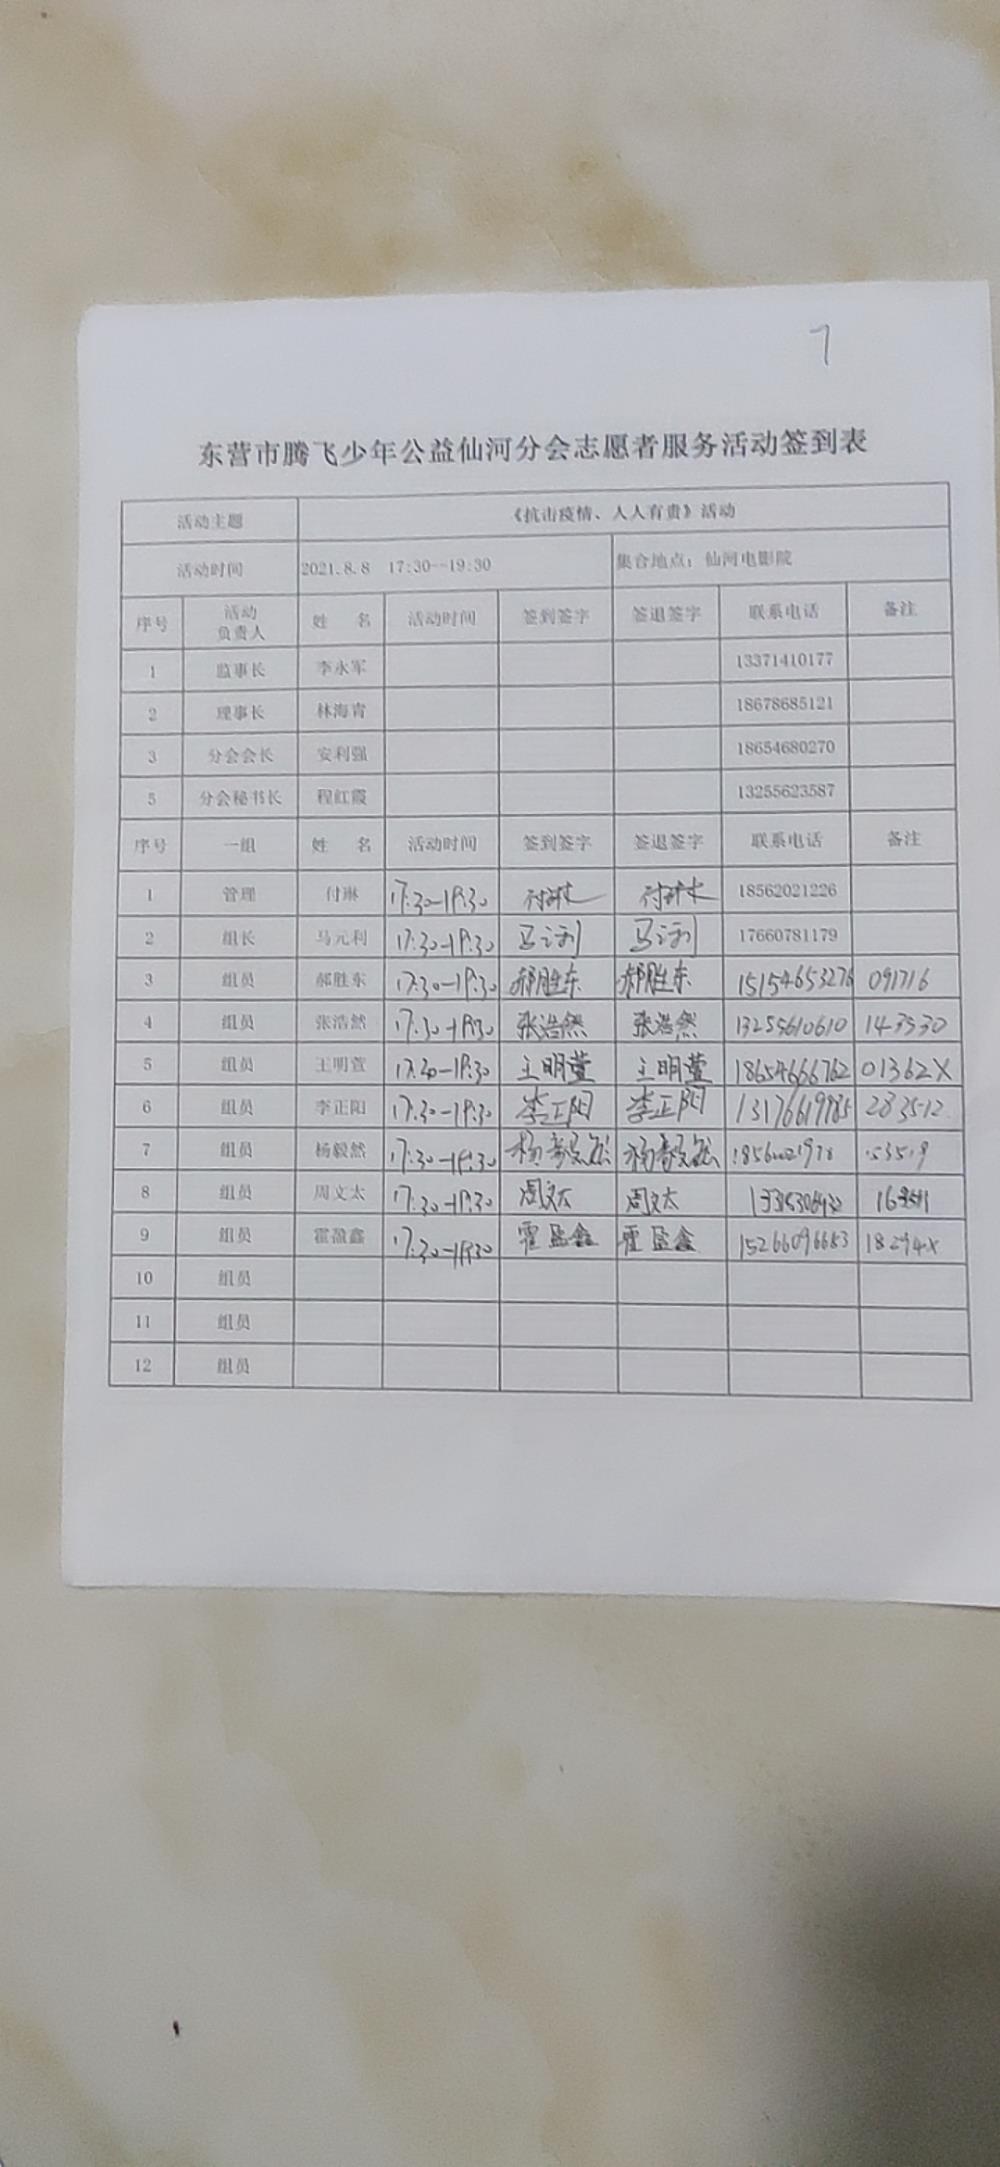 7
东营市腾飞少年公益仙河分会志愿者服务活动签到表
活动主题 《抗击疫情、人人有责》活动
活动时间 2021.8.8 17:30--19:30 集合地点：仙河电影院
序号 活动负责人 姓 名 活动时间 签到签字 签退签字 联系电话 备注
1 监事长 李永军 13371410177
2 理事长 林海青 18678685121
3 分会会长 安利强 18654680270
5 分会秘书长 程红霞 13255623587
序号 一组 姓 名 活动时间 签到签字 签退签字 联系电话 备注
1 管理 付琳 17:30-19:30 付琳 付琳 18562021226
2 组长 马元利 17:30-19:30 马元利 马元利 17660781179
3 组员 郝胜东 17:30-19:30 郝胜东 郝胜东 15154653276 091716
4 组员 张浩然 17:30-19:30 张浩然 张浩然 13255610610 143530
5 组员 王明萱 17:30-19:30 王明萱 王明萱 18654666762 01362X
6 组员 李正阳 17:30-19:30 李正阳 李正阳 13176619985 283512
7 组员 杨毅然 17:30-19:30 杨毅然 杨毅然
8 组员 周文太 17:30-19:30 周文太 周文太
9 组员 霍盈鑫 17:30-19:30 霍盈鑫 霍盈鑫 15266096683 18294X
10 组员
11 组员
12 组员